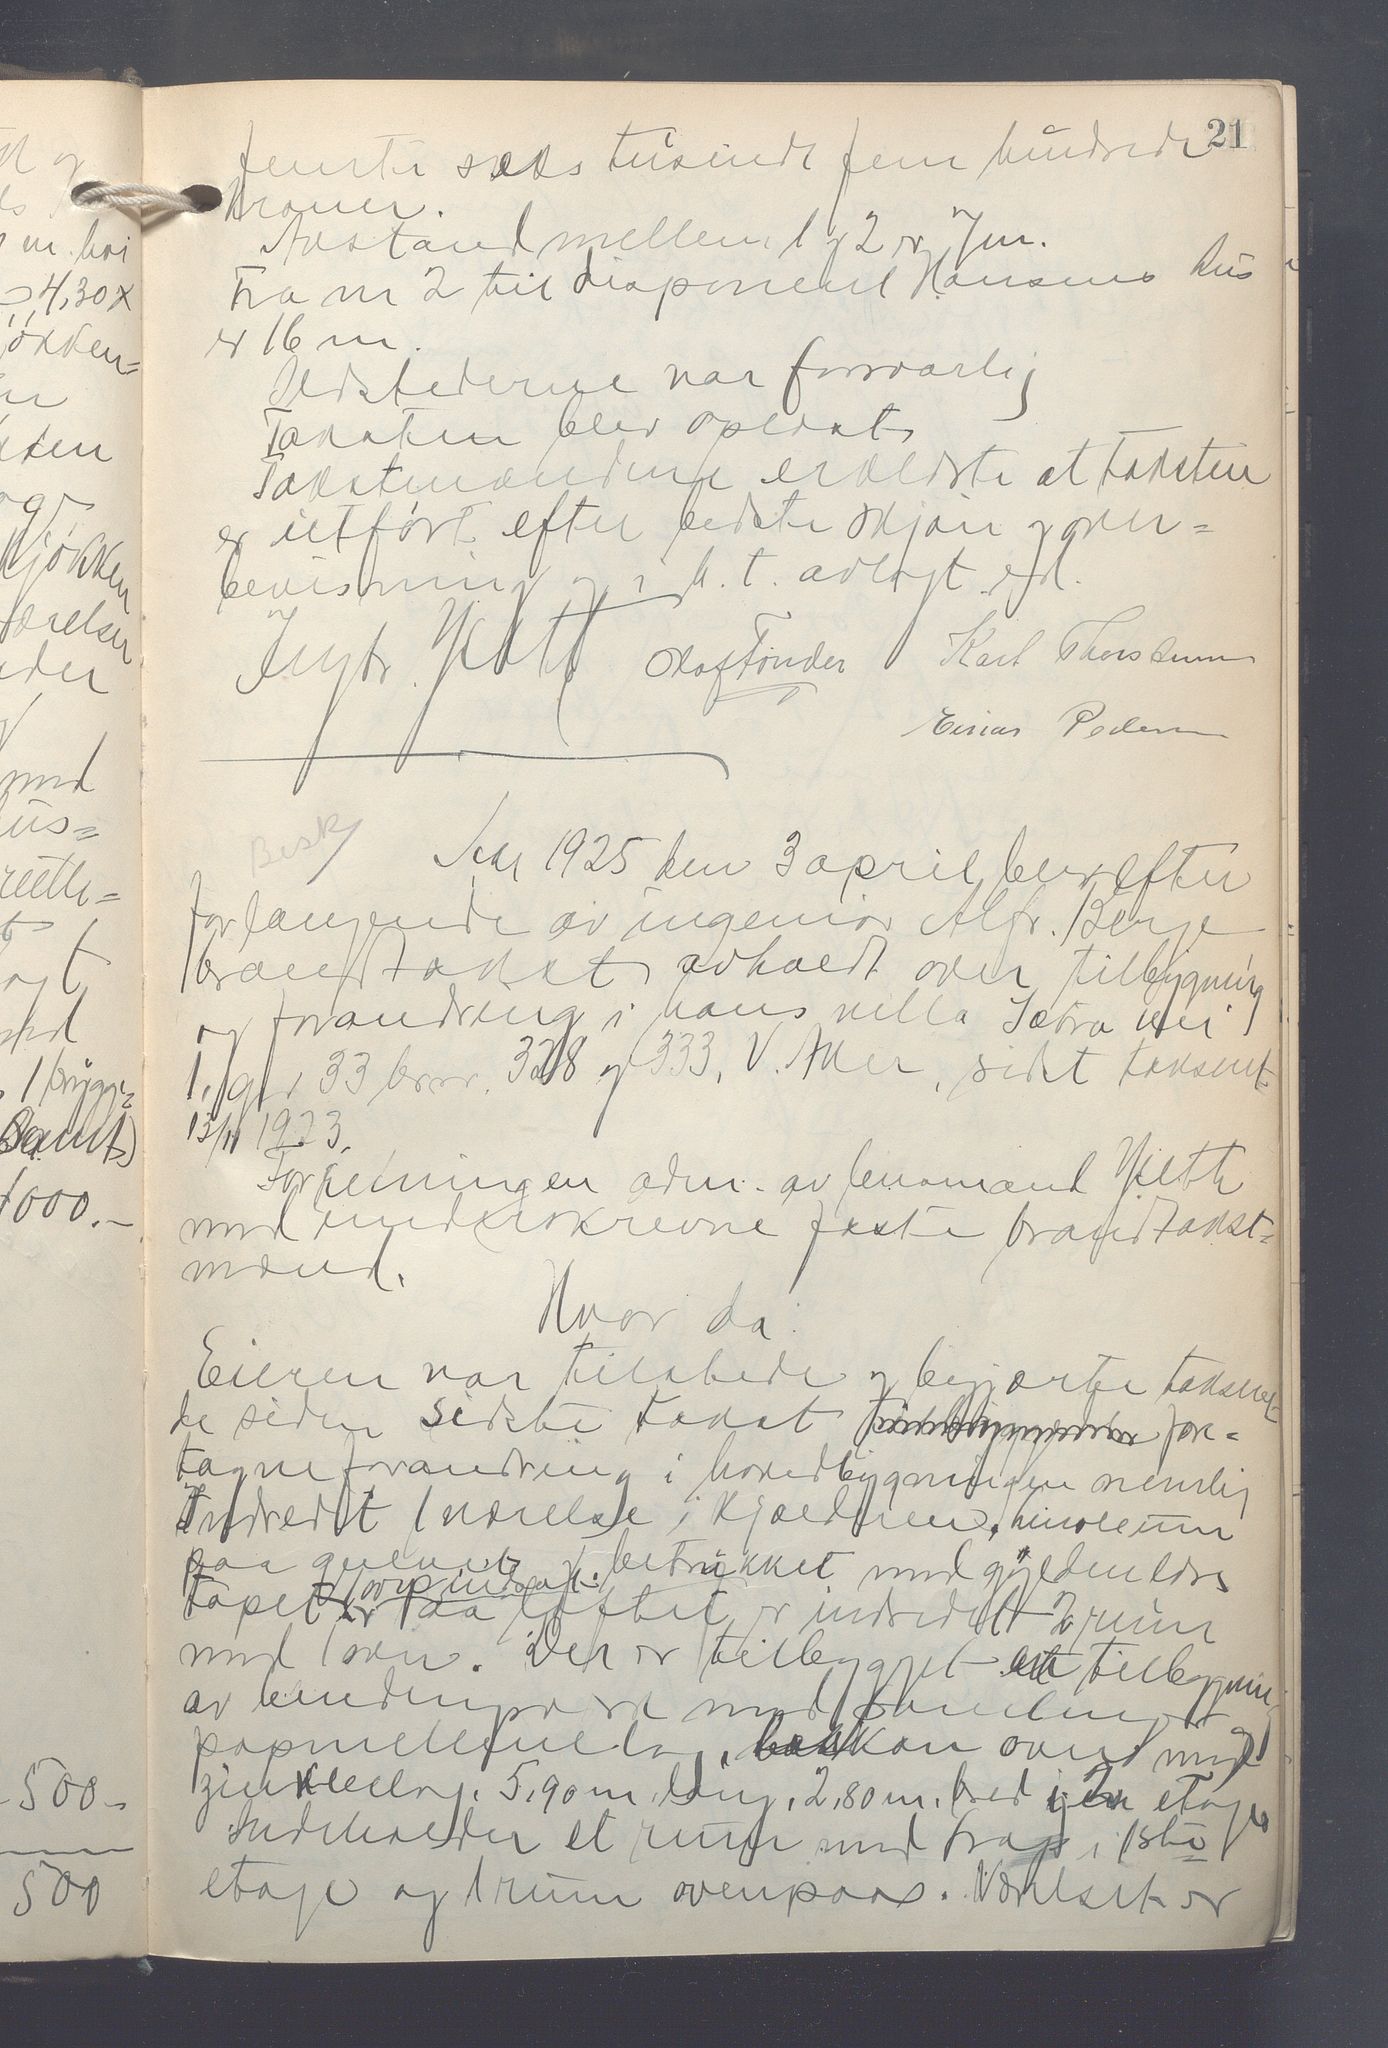 21
femti seks tusinde fem hundrede
kroner.
Avstand mellem 1 og 2 er 7 m.
Fra nr 2 til disponent Hansens hus
er 16 m.
Ildstederne var forsvarlig
Taksten blev oplæst
Takstmændene erklærte at taksten
er utført efter bedste skjøn og over=
bevisning og i h. t. avlagt ed.
Olaf Tønder Karl Thorsen
Einar Pedersen
Besk
Aar 1925 den 3 april blev efter
forlangende av ingeniør Alfr. Berge
brandtakst avholdt over tilbygning
og forandring i hans villa Sætra vei
1, g nr 33 br nr. 328 og 333, V. Aker, sidst taksert
13/11 1923.
Forretningen adm. av lensmand
med underskrevne faste brandtakst=
mænd.
Hvor da:
Eieren var tilstede og begjærte takser
de siden sidste takst fore=
tagne forandring i hovedbygningen nemlig
Indredet 1 værelse i kjælderen, linoleum
paa gulvet og betrukket med gyldenlærs
tapet. Paa loftet er indredet 2 rum
med ovn. Der er tilbygget en tilbygning
av bindingsverk med panel og
papmellemlag, balkon over med
zinkbeslag. 5,90 m. lang, 2,80 m. bred i 2 etager
Indeholder et rum med trap i 1ste
etage og 1 rum ovenpaa. Værelset er
m. høi
4,30 x
kjøkken
værelser
med
1 brygge=
Samt
1000.-
500-
500